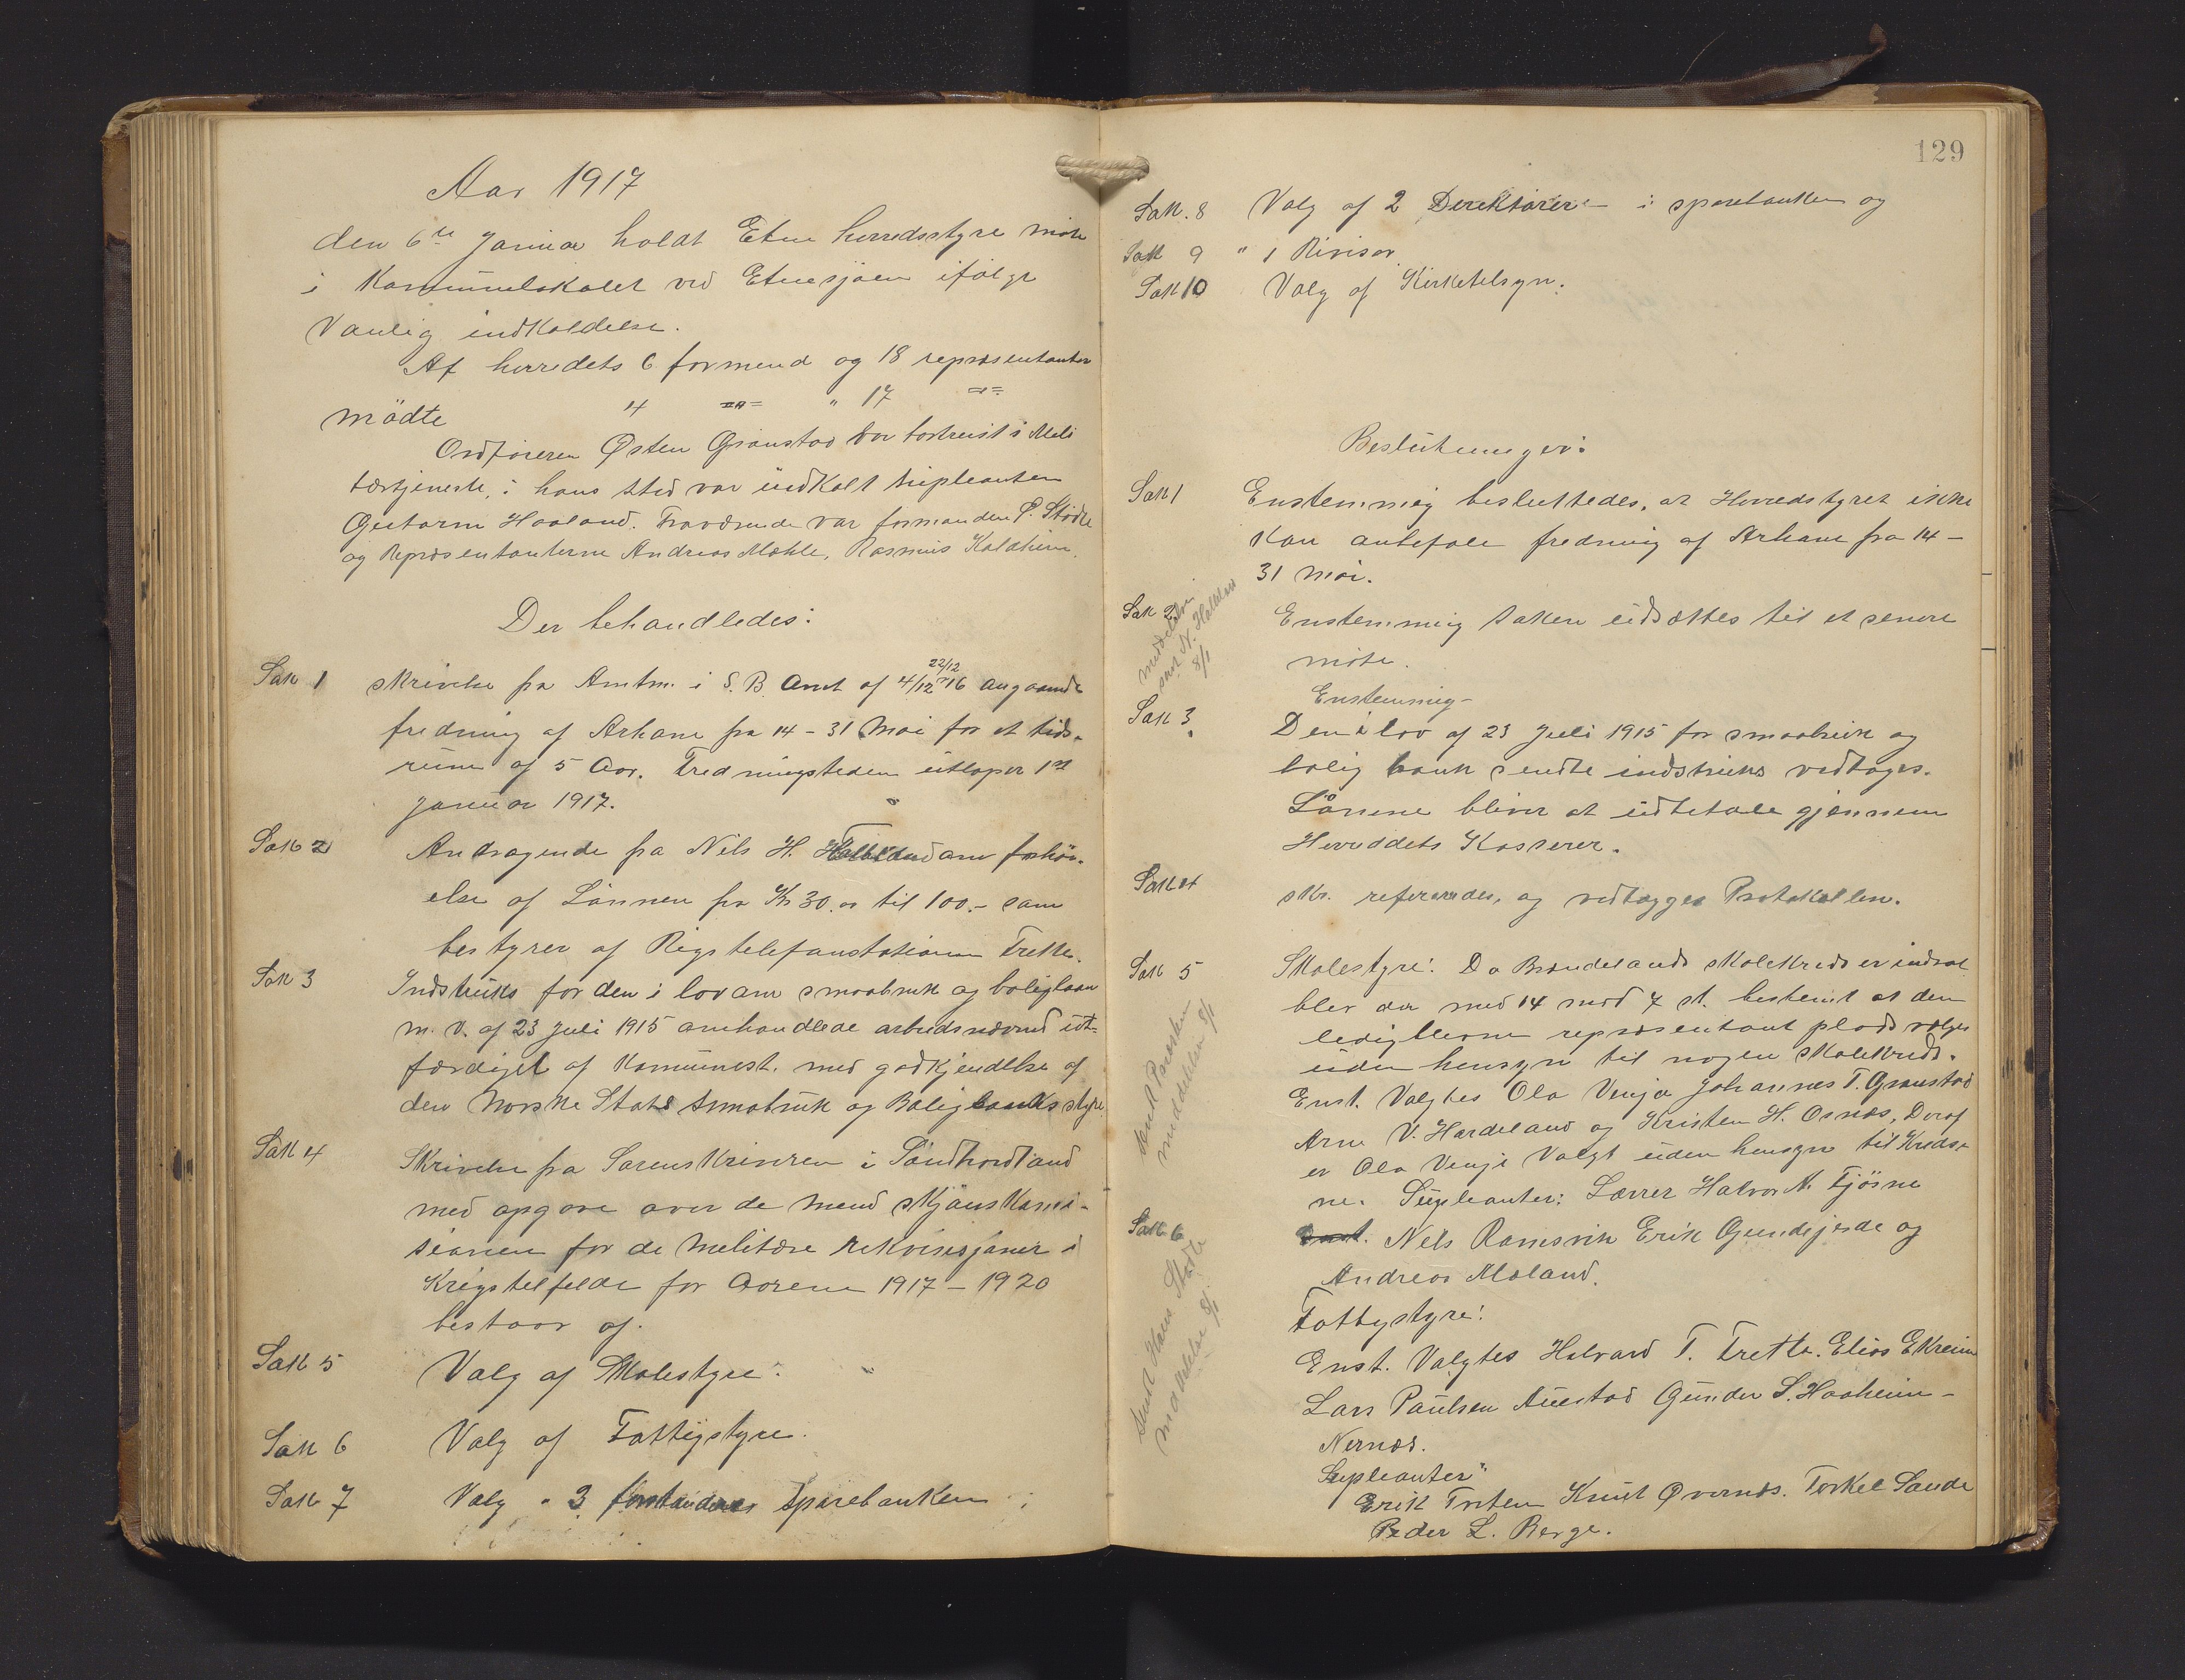 Aar 1917
den 6te Januar holdt Etne herredsstyre møte
i Kommunelokalet ved Etnesjøen ifølge
Vanlig indkaldelse.
Af herredets 6 formend og 18 representanter
mödte 4 -"- " 17 -"-
Ordføreren Østen Grønstad var bortreist i Mili
tærtjeneste, i hans sted var indkalt supleanten
Guttorm Haaland. Fraværende var formanden P. Stødle
og Repræsentanterne Andreas Mæhle, Rasmus Kaldheim.
Der behandledes:
Sak 1 skrivelse fra Amtm. i S. B. Amt af 4/12 22/12 16 angaaende
fredning af Århane fra 14 - 31 Mai for et tids-
rum af 5 Aar. Fredningstiden utløper 1ste
Januar 1917.
Sak 2 Andragende fra Nils H. om forhøi-
else af Lønnen fra Kr 30.00 til 100.- som
bestyrer af Rigstelefonstationen Frette.
Sak 3 Instruks for den i lov om smaabruk og boliglaan
m. v. af 23 Juli 1915 omhandlede arbeidsnævnd ut-
færdiget af Kommunest. med godkjendelse af
den Norske Stats Smabruk og Boligbanks styre
Sak 4 Skrivelse fra Sorenskriveren i Søndhordland
med opgave over de mend skjønskomi-
sionen for de Militære rekvisisjoner i
Krigstilfelde for Aarene 1917 - 1920
bestaar af.
Sak 5 Valg af Skolestyre.
Sak 6 Valg af Fattigstyre.
Sak 7 Valg " 3 forstandere Sparebanken
129
Sak. 8 Valg af 2 Direktører i sparebanken og
Sak 9 " 1 Revisor
Sak 10 Valg af Kirketilsyn.
Beslutninger:
Sak 1 Enstemmig besluttedes, at Herredstyret ikke
kan anbefale fredning af Århane fra 14 -
31 Mai.
Sak 2 Enstemmig saken udsættes til et senere
møte.
meddelelse
8/1
Enstemmig -
Sak 3. Den i lov af 23 Juli 1915 for smaabruk og
bolig bank sendte instruks vedtages.
Lånene bliver at udbetale gjennem
Herreddets Kasserer.
Sak 4 skr. refereredes, og vedlægges Protokollen.
Sak 5 Skolestyre: Da Brændelands skolekreds er
blev der med 14 mod 7 st. bestemt at den
ledigblevne repræsentant plads vælges
uden hensyn til nogen skolekreds.
Enst. Valgtes Ola Venja Johannes T. Grønstad
Arne V. Hardeland og Kristen H. Osnæs, Deraf
er Ola Venje Valgt uden hensyn til Kredse-
ne. Supleanter: Lærer Halvor N. Fjøsne
Sendt Presten
meddelelse 8/1
Sak 6 Enst. Nils Ramsvik Erik Grindejorde og
Andreas Moland.
Fattystyre:
Enst. Valgtes Halvard T. Frette. Elias Ekrheim
Lars Paulsen Austad Gunder S. Haaheim -
Nernes.
Supleanter"
Erik Tveten Knut Øvernes. Torkel Sande
Peder L. Berge.
Sendt Hans Stødle
meddelelse 8/1